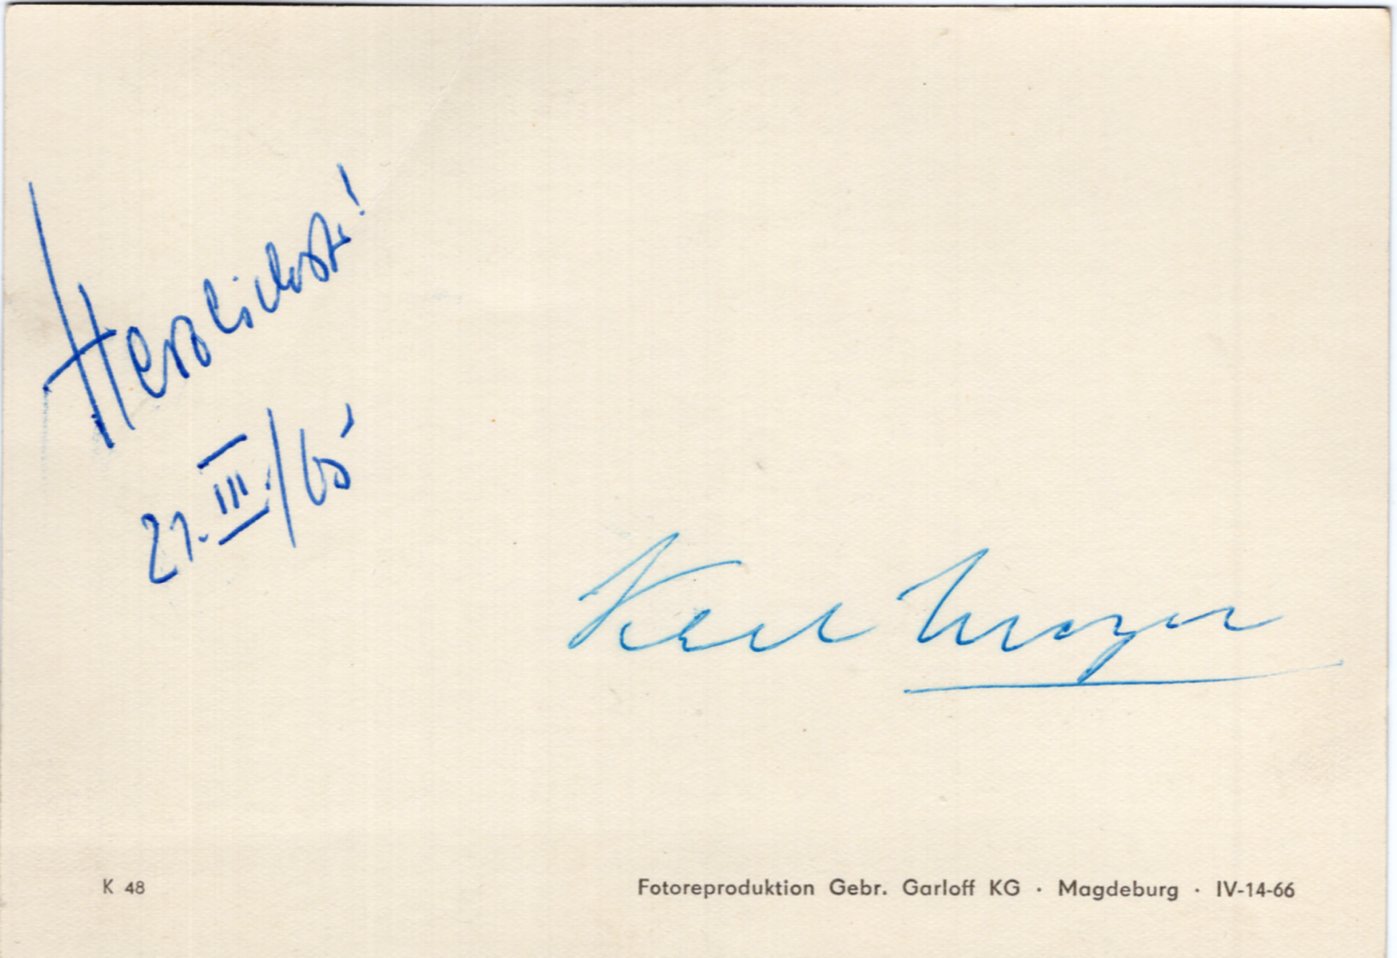 Herzlichst!
21. III / 65
Karl Mayer
K 48
Fotoreproduktion Gebr. Garloff KG · Magdeburg · IV-14-66